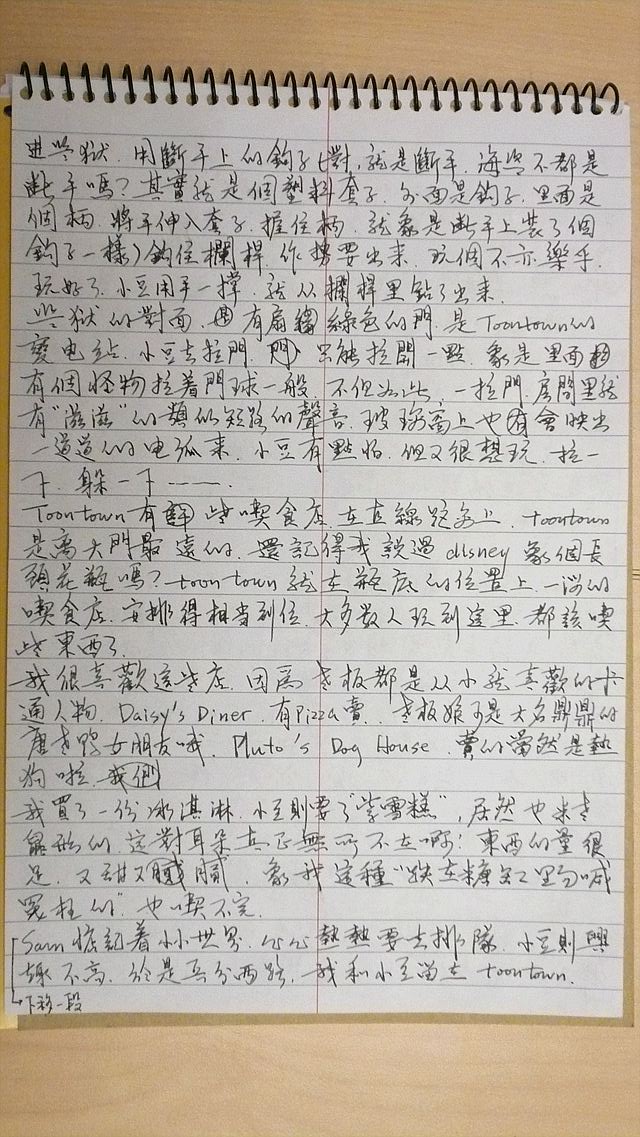 進監獄. 用斷手上的鈎子(對, 就是斷手. 海盜不都是
斷手嗎? 其實就是個塑料套子. 外面是鈎子. 里面是
個柄. 將手伸入套子. 握住柄. 就象是斷手上裝了個
鈎子一樣) 鈎住欄桿. 作勢要出來. 玩個不亦樂乎.
玩好了. 小豆用手一撐. 就从攔桿里鉆了出來.
監獄的對面. 有扇綠色的門. 是Toontown的
變电站. 小豆去拉門. 門只能拉開一點. 象是里面
有個怪物拉着門球一般. 不但如此, 一拉門. 房間里就
有"滋滋"的類似短路的聲音. 玻璃窗上也會映出
一道道的电弧來. 小豆有點怕. 但又很想玩. 拉一
下. 躲一下——.
Toontown有些喫食店. 在直線距離上. toontown
是离大門最遠的. 還記得我說過disney象個長
頸花瓶嗎? toontown就在瓶底的位置上. 一溜的
喫食店. 安排得相当到位. 大多数人玩到這里. 都該喫
些東西了.
我很喜歡這些店. 因爲老板都是从小就喜歡的卡
通人物. Daisy's Diner. 有Pizza賣. 老板娘可是大名鼎鼎的
唐老鴨女朋友哦. Pluto's Dog House. 賣的當然是熱
狗啦.
我買了一份冰淇淋. 小豆則要了"紫雪糕", 居然也米老
鼠形的. 這對耳朵真正無所不在啊! 東西的量很
足. 又甜又膩. 象我這種"跌在糖缸里勿喊
冤枉的" 也喫不完.
Sam惦記着小小世界. 心心熱熱要去排隊. 小豆則興
趣不高. 於是兵分两路. 我和小豆留在toontown.
下移一段